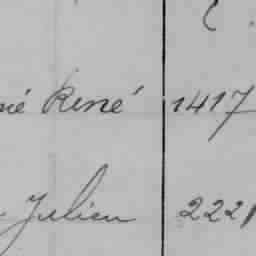 né René 1417
Julien 222